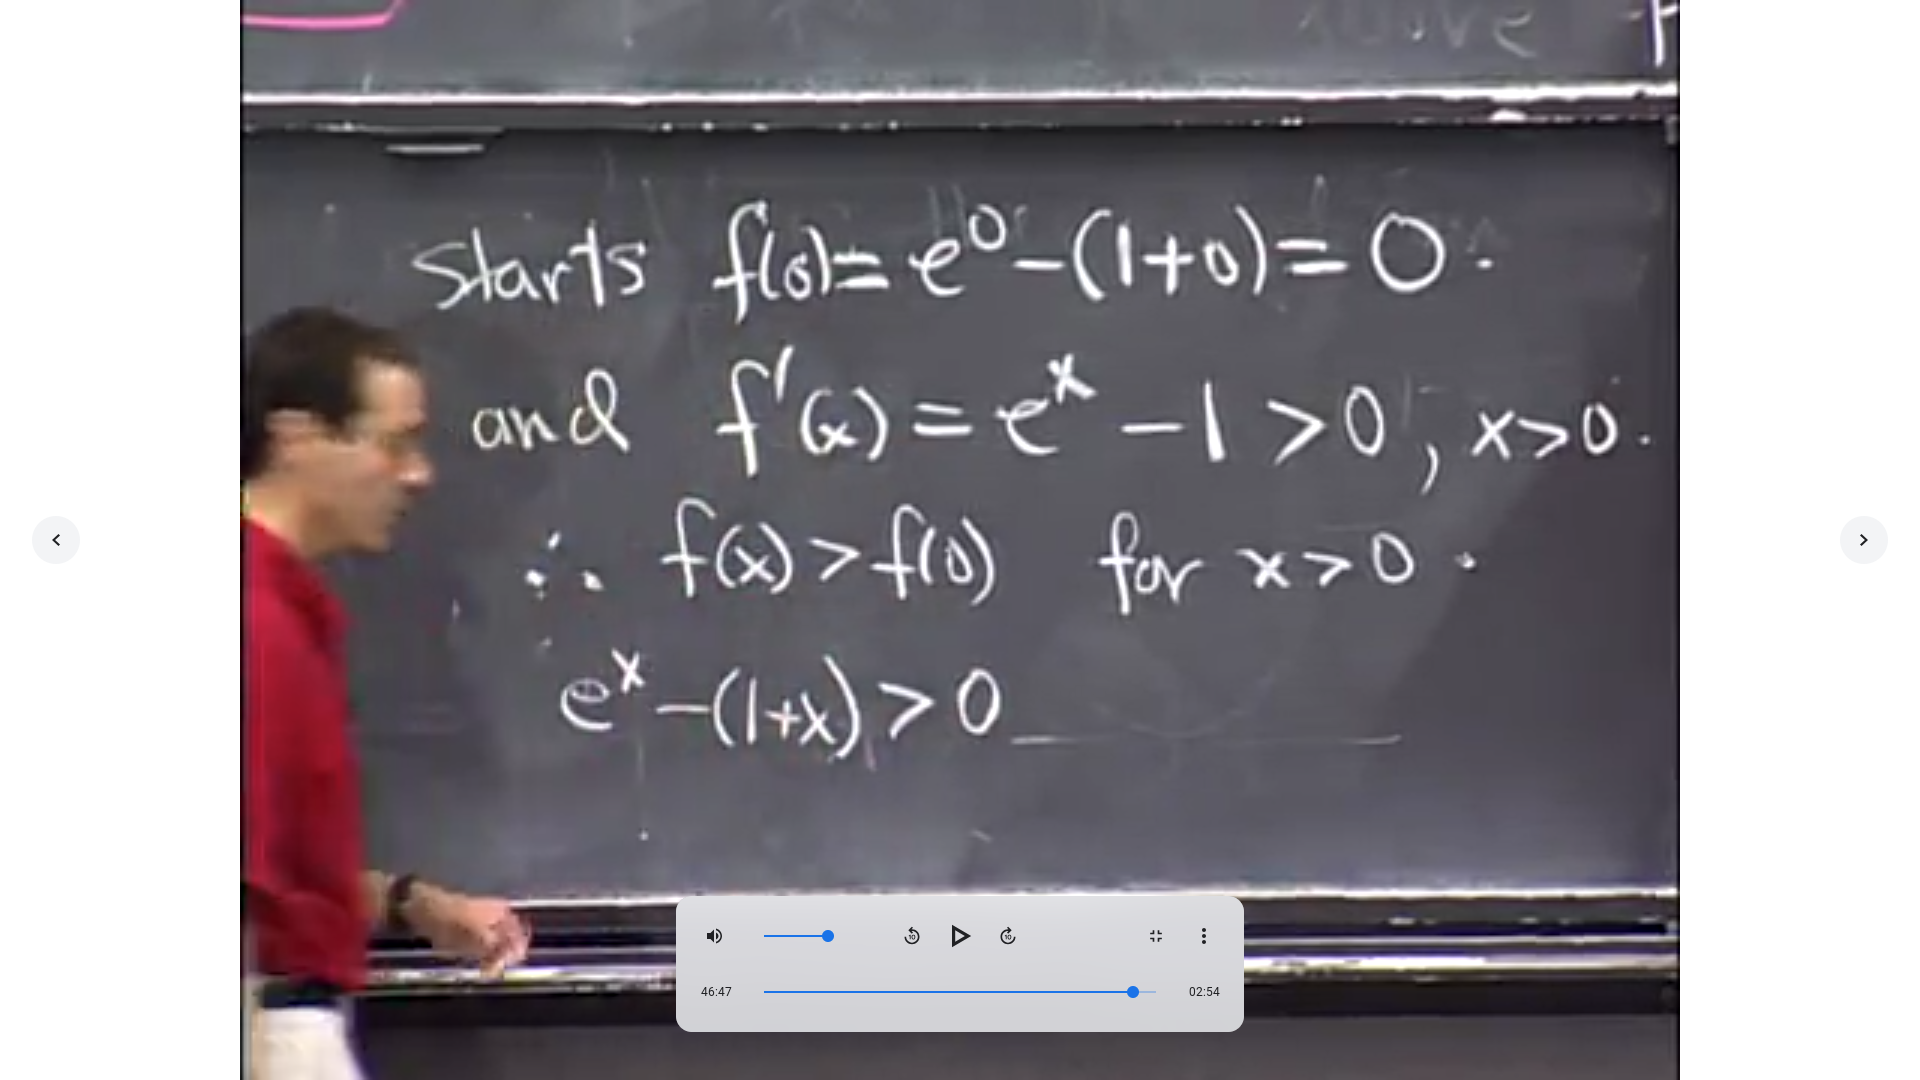 solve
starts f(0) = e⁰ - (1+0) = 0.
and f'(x) = eˣ - 1 > 0, x > 0.
∴ f(x) > f(0) for x > 0.
eˣ - (1+x) > 0
10 10
46:47 02:54